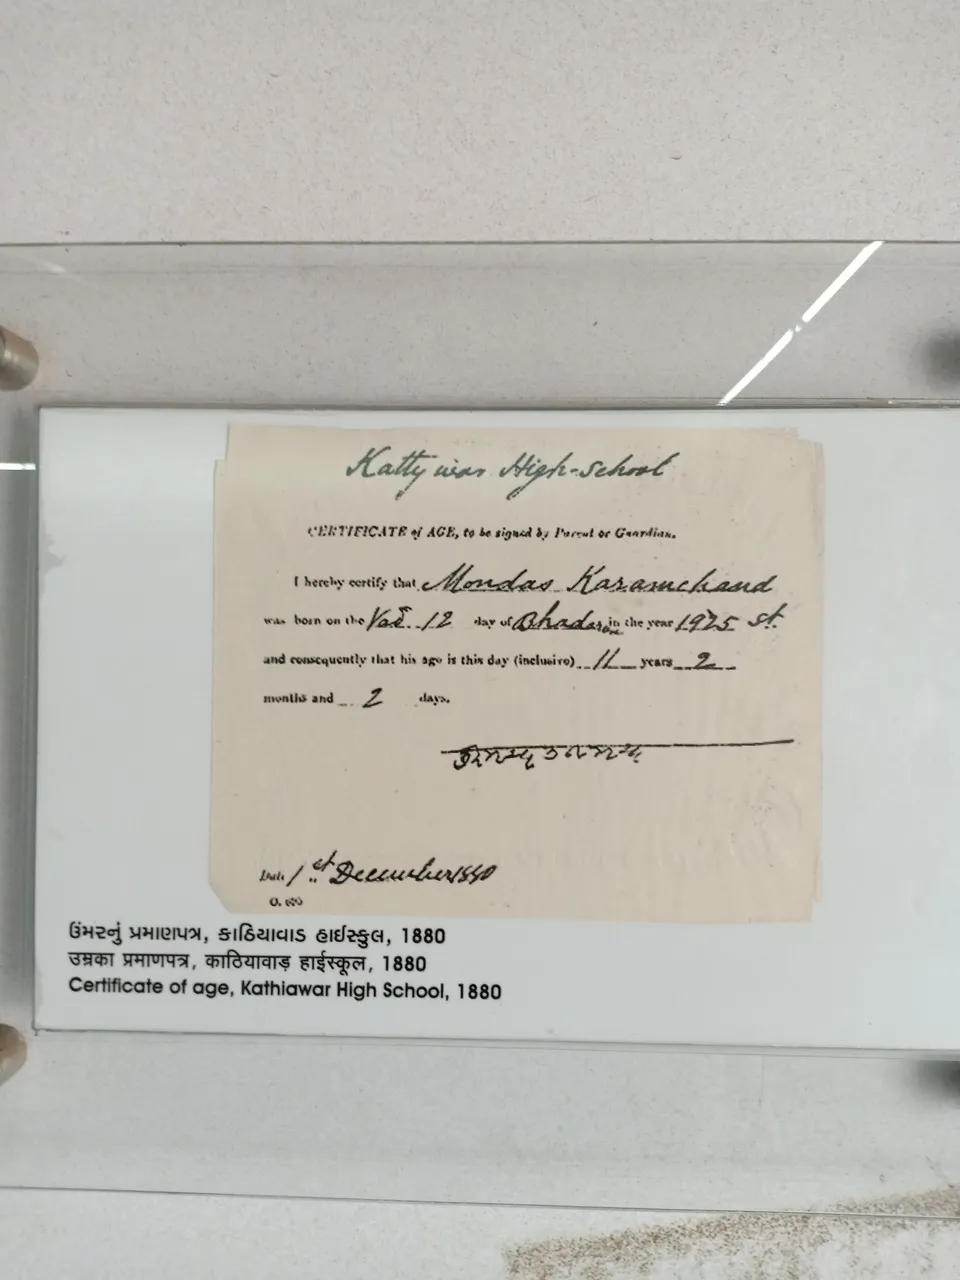 Kattywar High-School
CERTIFICATE of AGE, to be signed by Parent or Guardian.
I hereby certify that Mondas Karamchand
was born on the Vad 12 day of Bhadarva in the year 1925 St.
and consequently that his age is this day (inclusive) 11 years 2
months and 2 days.
Date 1st December 1880
ઉંમરનું પ્રમાણપત્ર, કાઠિયાવાડ હાઈસ્કુલ, 1880
उम्रका प्रमाणपत्र, काठियावाड़ हाईस्कूल, 1880
Certificate of age, Kathiawar High School, 1880